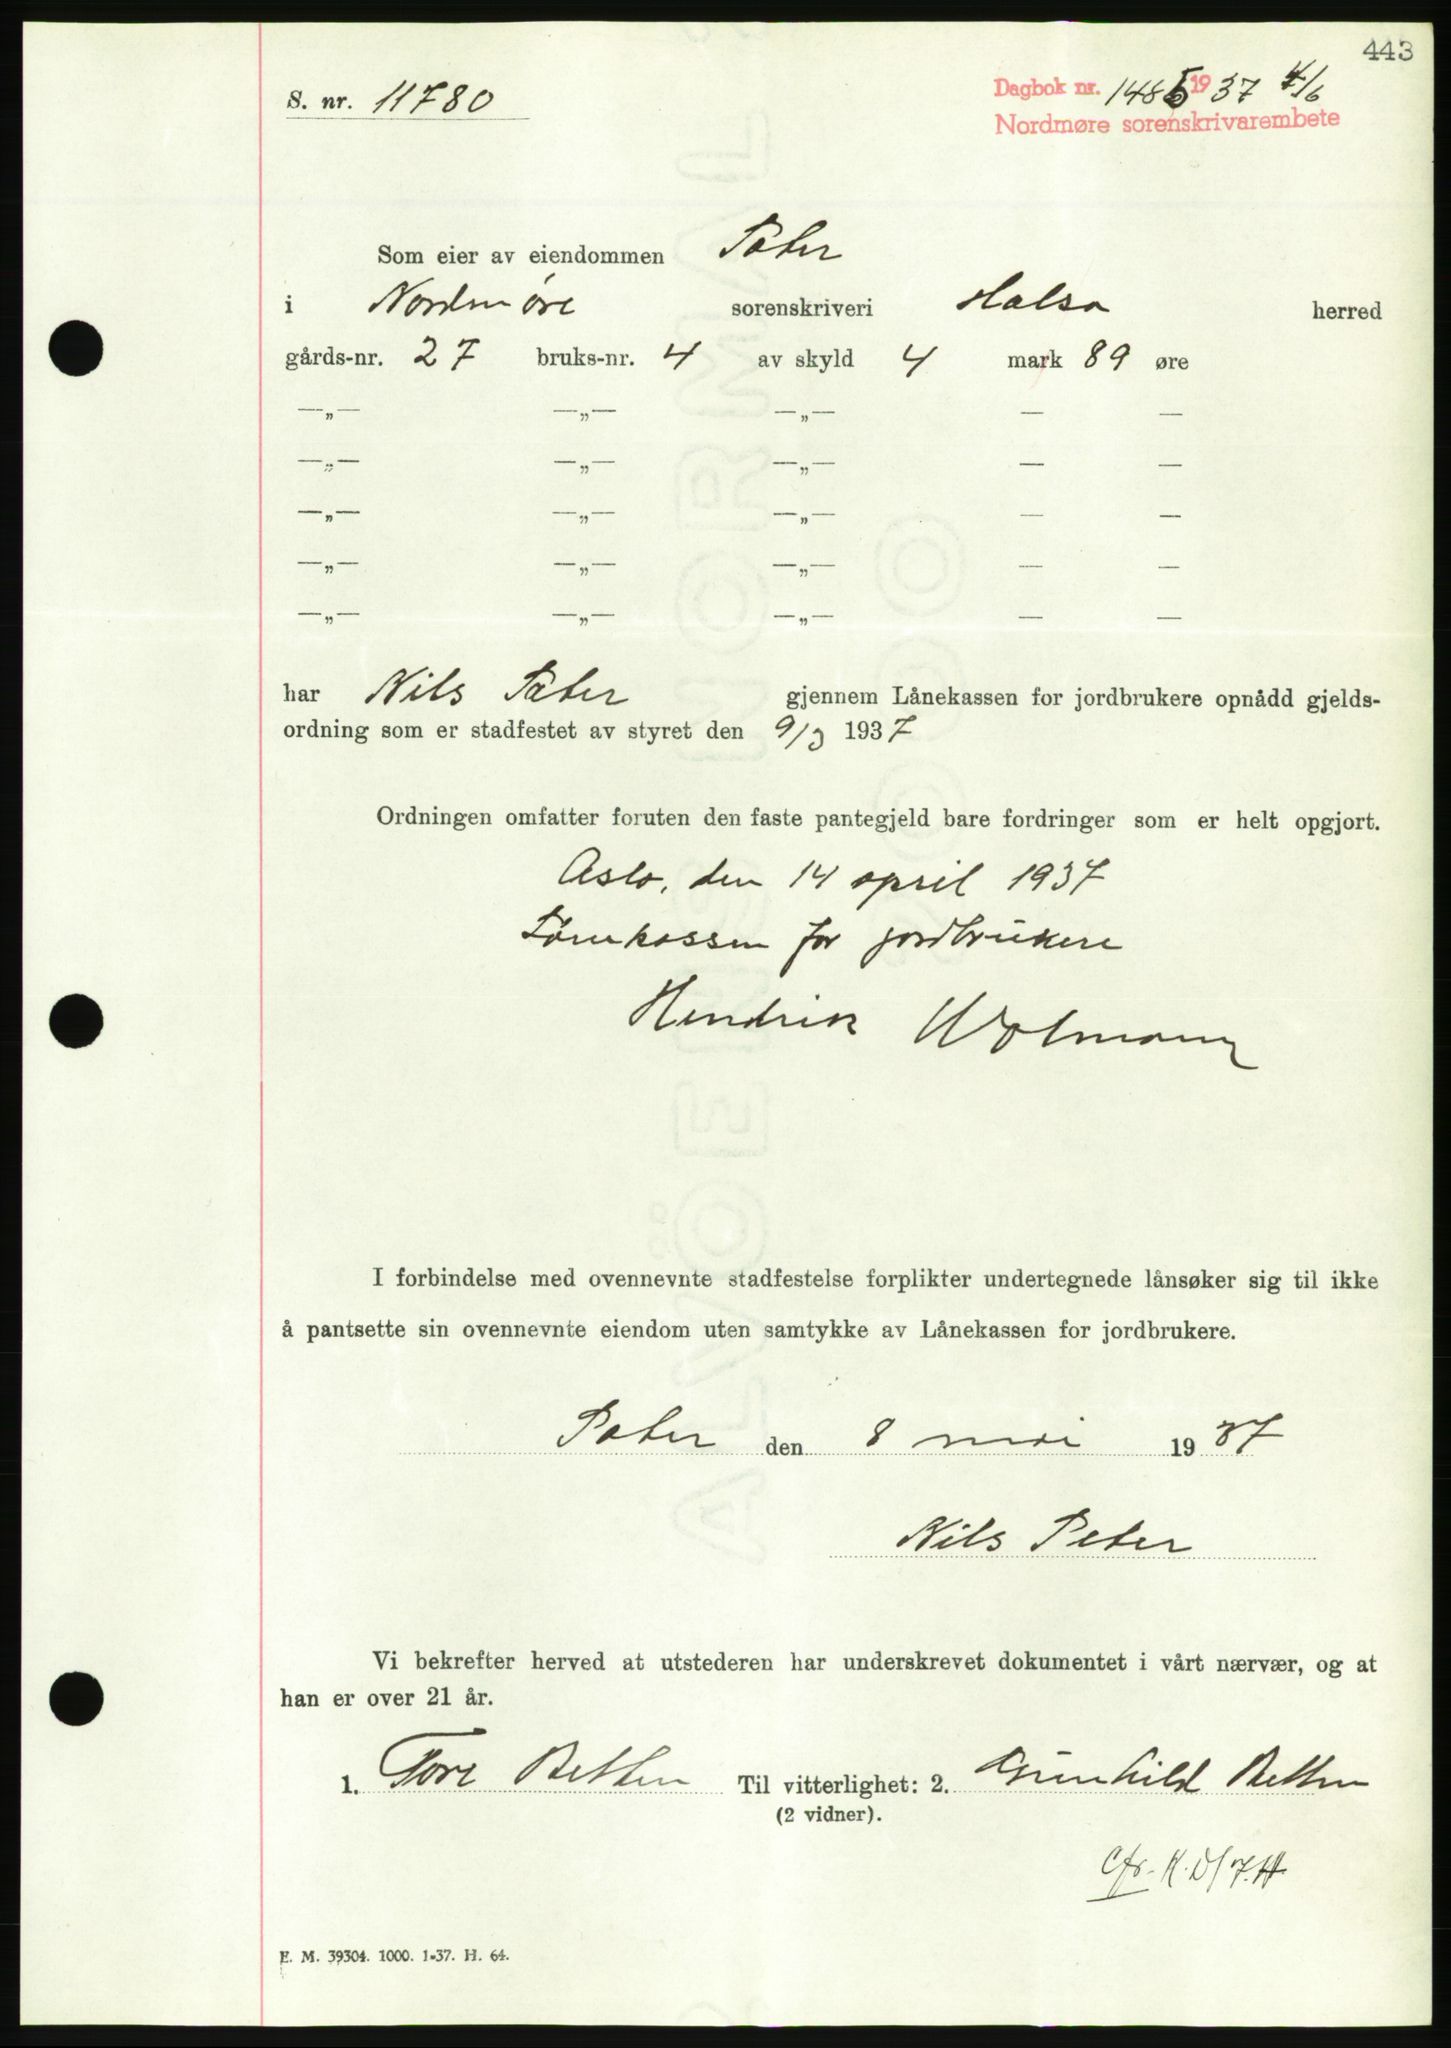 443
S. nr. 11780
Dagbok nr. 1485 1937 4/6
Nordmøre sorenskrivarembete
Som eier av eiendommen Sæter
i Nordmøre sorenskriveri Halsa herred
gårds-nr. 27 bruks-nr. 4 av skyld 4 mark 89 øre
—„— —„— —„— — —
—„— —„— —„— — —
—„— —„— —„— — —
—„— —„— —„— — —
—„— —„— —„— — —
har Nils Sæter gjennem Lånekassen for jordbrukere opnådd gjelds-
ordning som er stadfestet av styret den 9/3 1937
Ordningen omfatter foruten den faste pantegjeld bare fordringer som er helt opgjort.
Oslo, den 14 april 1937
Lånekassen for jordbrukere
Hendrik
I forbindelse med ovennevnte stadfestelse forplikter undertegnede lånsøker sig til ikke
å pantsette sin ovennevnte eiendom uten samtykke av Lånekassen for jordbrukere.
Sæter den 8 mai 1937
Nils Seter
Vi bekrefter herved at utstederen har underskrevet dokumentet i vårt nærvær, og at
han er over 21 år.
1. Tore Betten Til vitterlighet: 2. Gunhild Betten
(2 vidner).
Cfr.
E. M. 39304. 1000. 1-37. H. 64.
ALVÖENS NORMAL